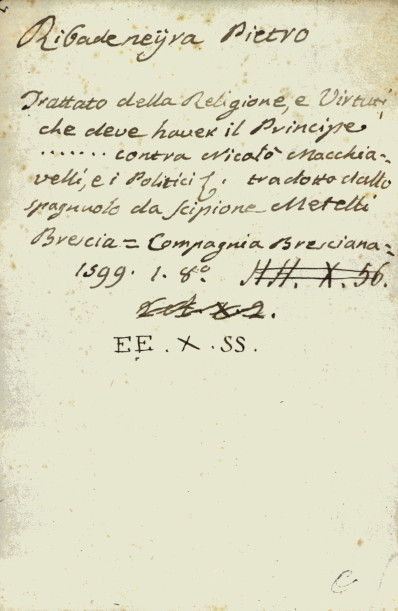 Ribadeneÿra Pietro
Trattato della Religione, e Virtuti,
che deve haver il Principe
....... contra Nicolò Macchia=
velli, e i Politici &. tradotto dallo
spagnuolo da Scipione Metelli
Brescia = Compagnia Bresciana =
1599. 1. 8.º HH. X. 56.
EE. X. SS.
C